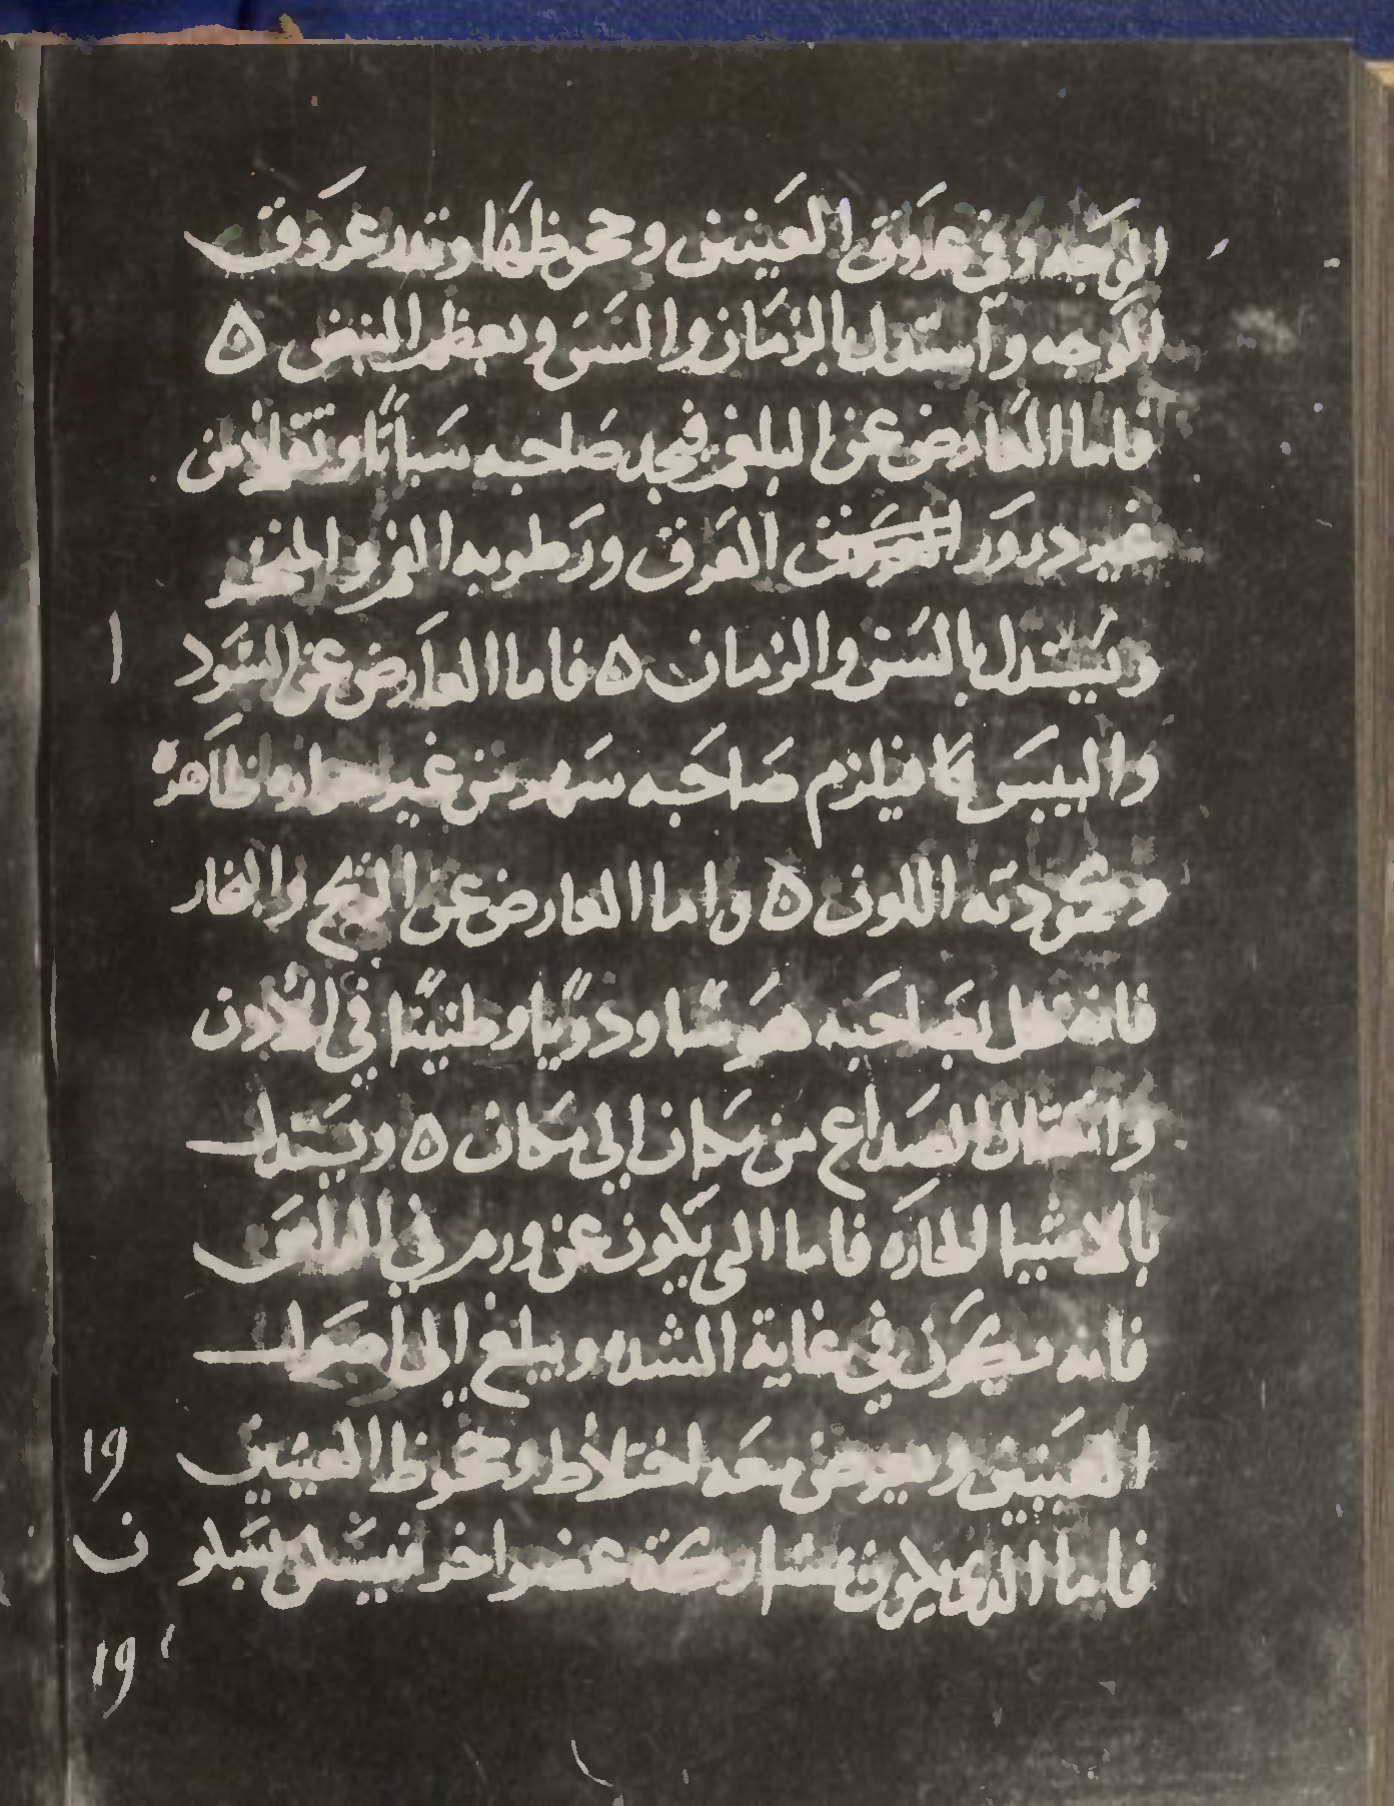 الوجه وفي عروق العينين وجحوظها وتمدد عروق
الوجه واستدل بالزمان والسن وبعظم النبض ه
فاما العارض عن البلغم فيجد صاحبه سباتا وثقلا من
غير درور العرق ورطوبه الفم والمنخر
ويستدل بالسن والزمان ه فاما العارض عن السود ا
واليبس فيلزم صاحبه سهر من غير حراره ظاهرة
وكمودته اللون ه واما العارض عن الريح والبخار
فانه بصاحبه هوسا ودويا وطنينا في الأذن
وانتقال الصداع من مكان الى مكان ه ويستدل
بالاشيا الحاره فاما الى يكون عن ورم في
فانه يكون في غاية الشده ويبلغ الى اصول
العينين ويعرض معه اختلاط وجحوظ العينين وا
فاما الذي يكون بمشاركة عضو اخر فيستدل ن
وا